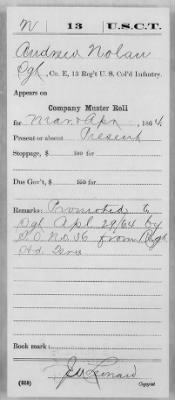 N | 13 | U.S.C.T.
Andrew Nolan
Sgt, Co. E, 13 Reg't U. S. Col'd Infantry.
Appears on
Company Muster Roll
for Mar & Apr, 1864
Present or absent Present
Stoppage, $ 100 for
Due Gov't, $ 100 for
Remarks: Promoted to
Sgt Apl 29/64 by
S.O. No. 36 from
Hd.
Book mark:
(858)
Copyist.